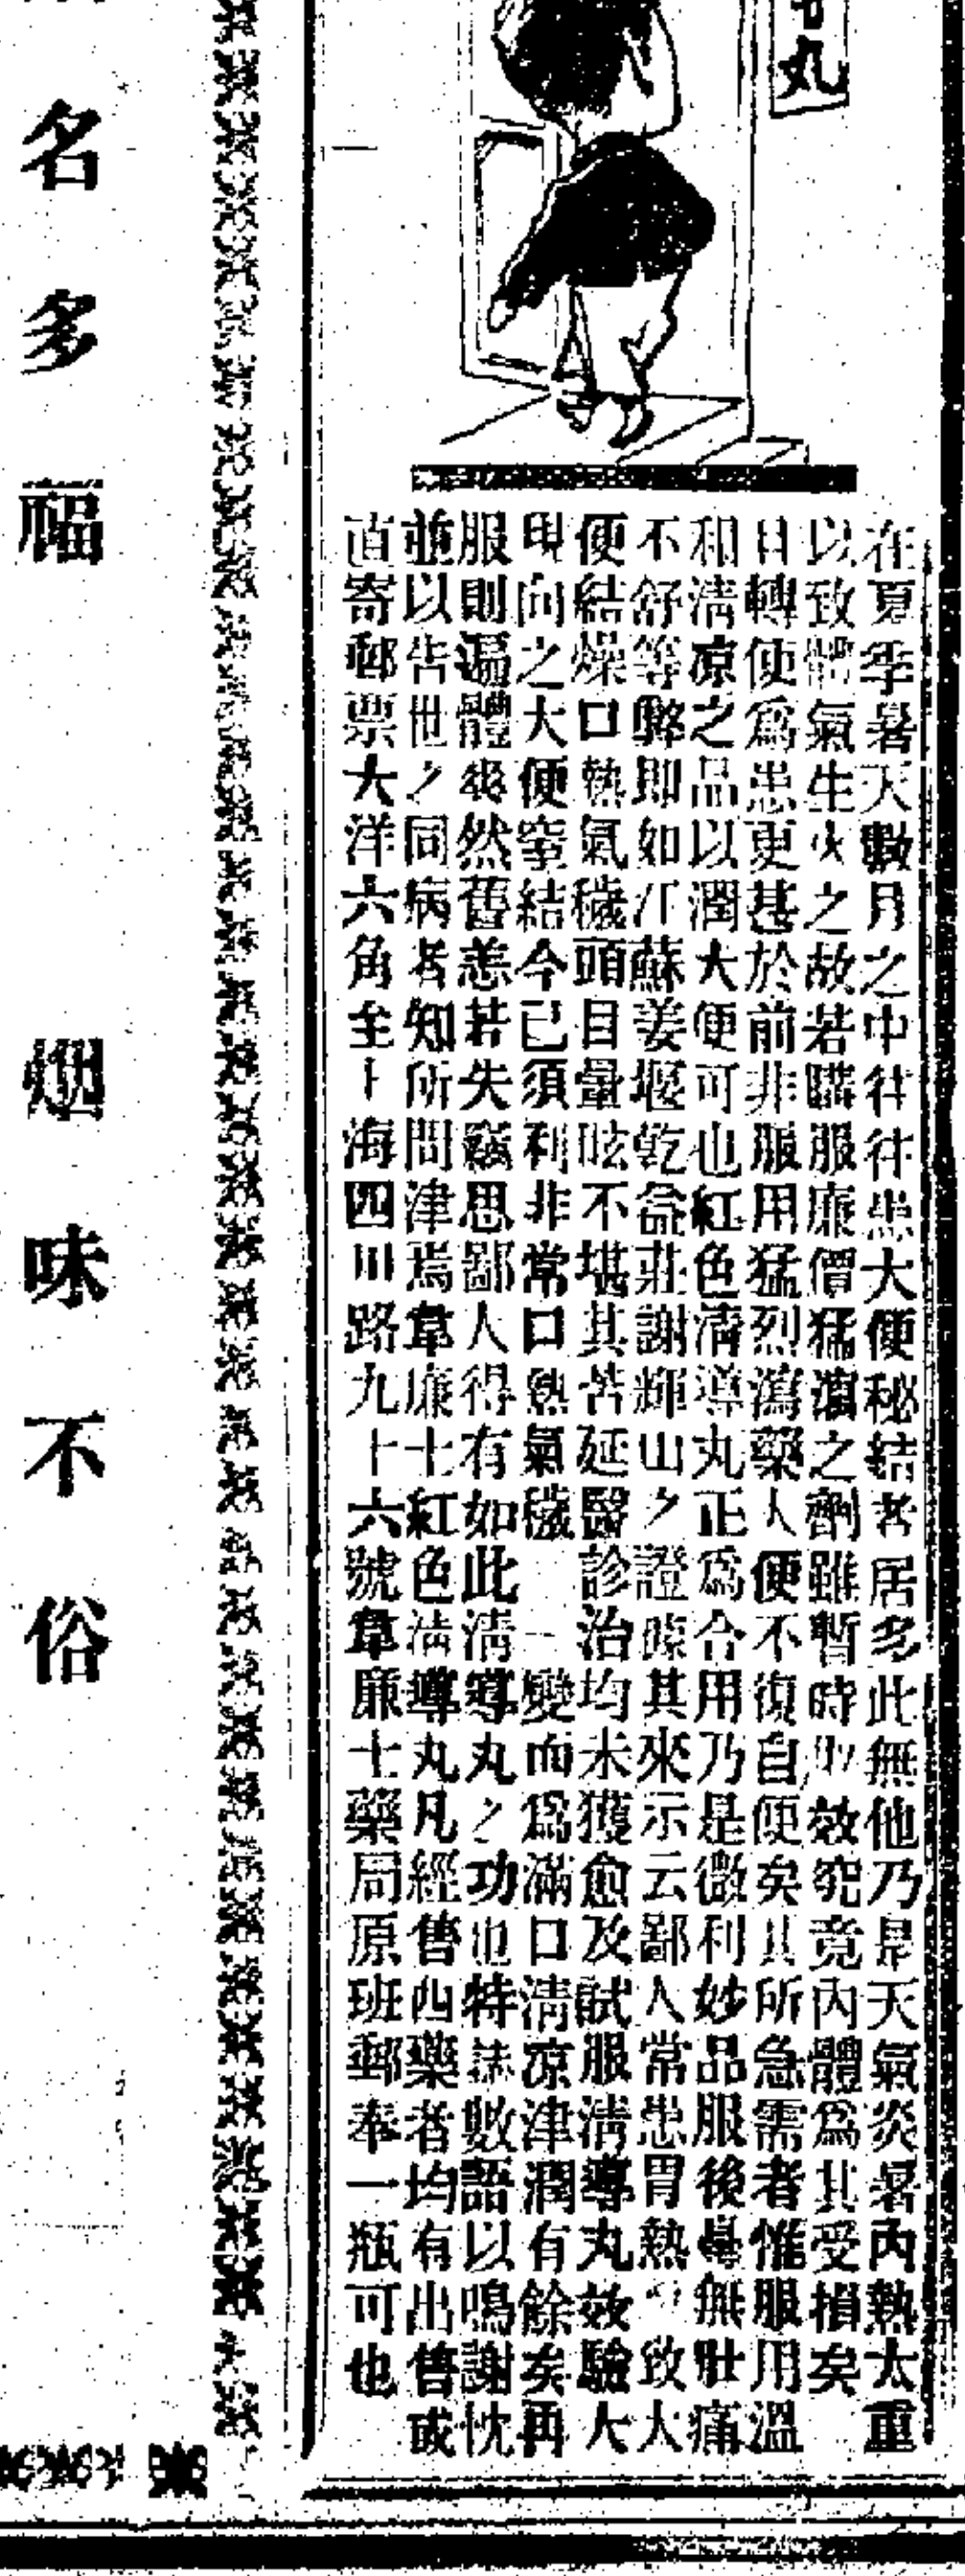 丸
在夏季暑天數月之中往往患大便秘結者居多此無他乃是天氣炎暑內熱太重
以致體氣生火之故若購服廉價猛瀉之劑雖暫時取效究竟內體爲其受損矣
日轉使爲患更甚於前非服用猛烈瀉藥人便不復自便矣其所急需者惟服用溫
和清凉之品以潤大便可也紅色清導丸正爲合用乃是微利妙品服後毫無肚痛
不舒等弊即如江蘇姜堰乾益莊謝輝山之證據其來示云鄙人常患胃熱以致大
便結燥口熱氣穢頭目暈眩不堪其苦延醫診治均未獲愈及試服清導丸效驗大
現向之大便窒結今已須利非常口熱氣穢一變而爲滿口清凉津潤有餘矣再
服則漏體霍然舊恙若失竊思鄙人得有如此清導丸之功也特誌數語以鳴謝忱
並以告世之同病者知所問津焉韋廉士紅色清導丸凡經售西藥者均有出售或
直寄郵票大洋六角至上海四川路九十六號韋廉士藥局原班郵奉一瓶可也
名多福
烟味不俗